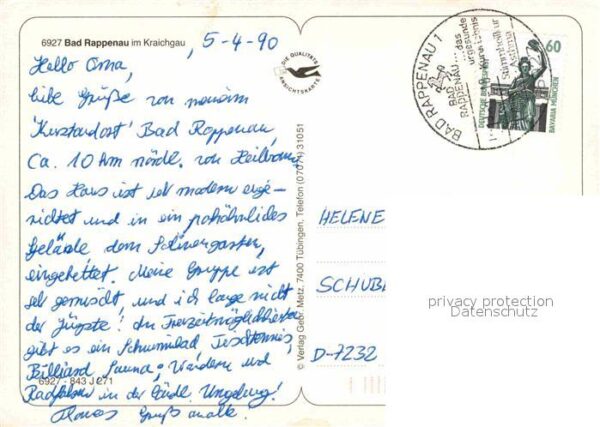 6927 Bad Rappenau im Kraichgau
, 5-4-90
Hello Oma,
liebe Grüße von meinem
"Kurstandort" Bad Rappenau,
Ca. 10 km nördl. von Heilbronn.
Das Haus ist seh modern einge-
richtet und in ein parkähnliches
Gelände dem Salinengarten,
eingebettet. Meine Gruppe ist
seh gemischt und ich lange nicht
der Jügste! An Freizeitmöglichkeiten
gibt es ein Schwimmbad Tischtennis,
Billiard Sauna; Wandern und
Radfahren in der ländl. Umgebung!
Gruß an alle.
6927 - 843 J 271
DIE QUALITÄTS
ANSICHTSKARTE
© Verlag Gebr. Metz, 7400 Tübingen, Telefon (07071) 31051
BAD RAPPENAU 1
BAD
RAPPENAU... das
urgesunde
60
DEUTSCHE BUNDESPOST
BAVARIA MÜNCHEN
HELENE
SCHUB
D-7232
privacy protection
Datenschutz